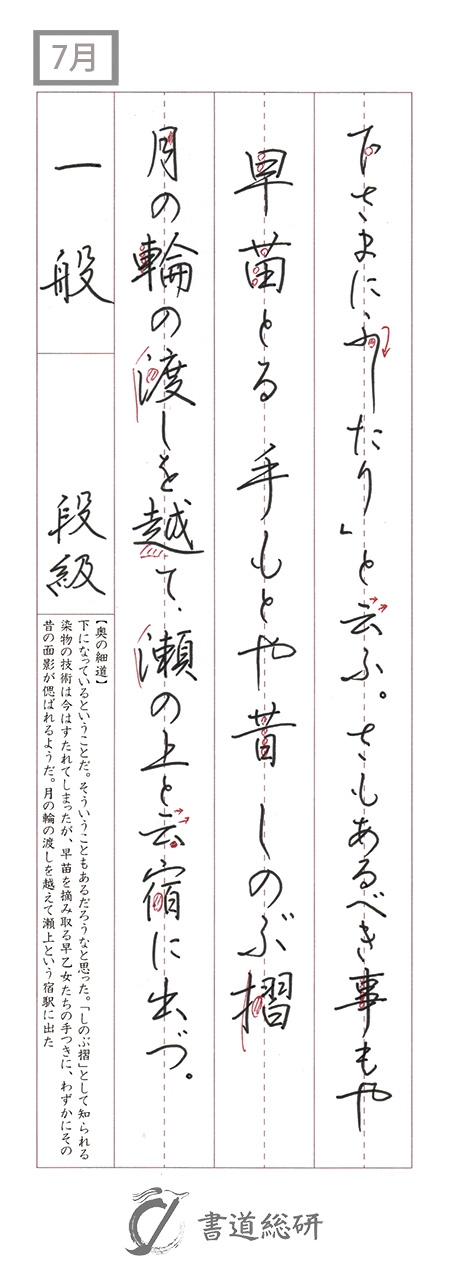 7月
下さまにふしたり」と云ふ。さもあるべき事もや
早苗とる手もとや昔しのぶ摺
月の輪の渡しを越て、瀬の上と云宿に出づ。
一般
段級
【奥の細道】
下になっているということだ。そういうこともあるだろうなと思った。「しのぶ摺」として知られる
染物の技術は今はすたれてしまったが、早苗を摘み取る早乙女たちの手つきに、わずかにその
昔の面影が偲ばれるようだ。月の輪の渡しを越えて瀬上という宿駅に出た
書道総研